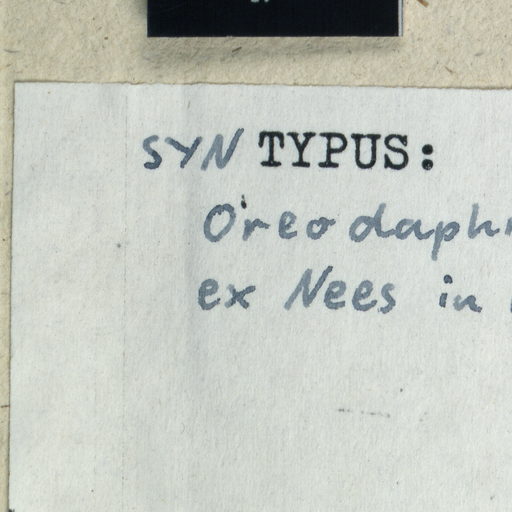 SYN TYPUS:
Oreodaph
ex Nees in